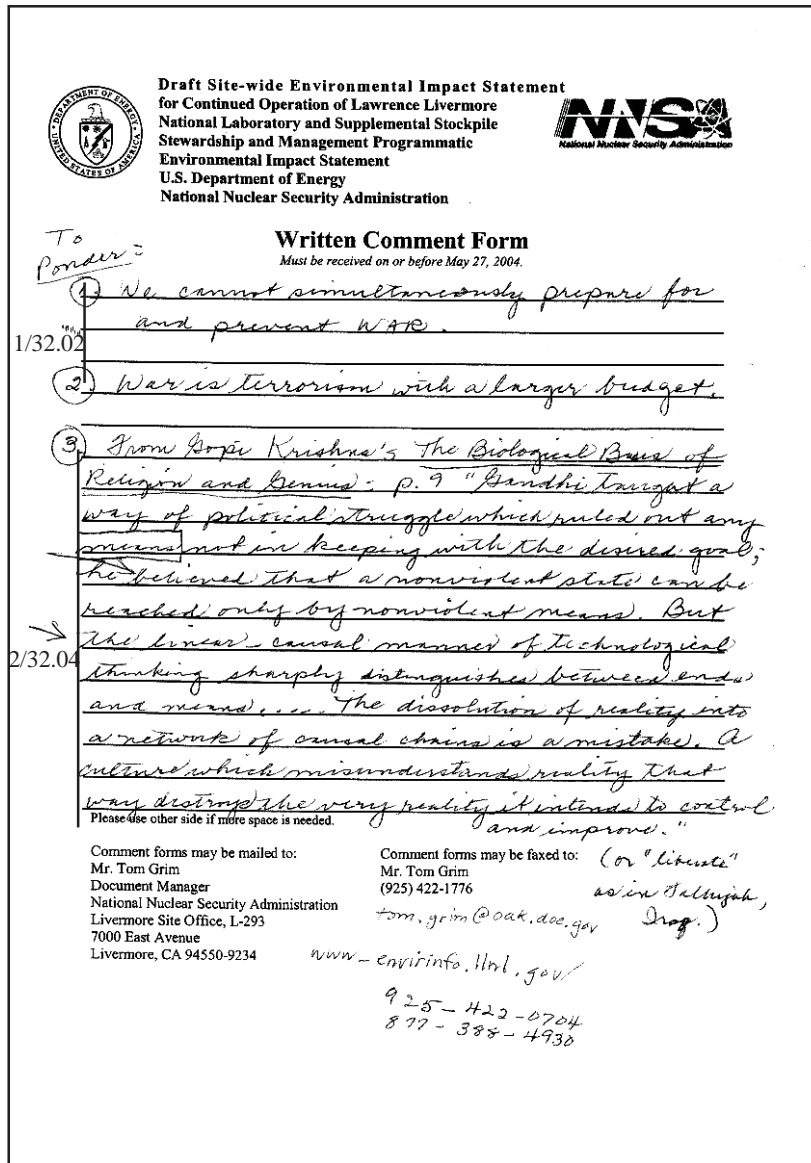 Draft Site-wide Environmental Impact Statement
for Continued Operation of Lawrence Livermore
National Laboratory and Supplemental Stockpile
Stewardship and Management Programmatic
Environmental Impact Statement
U.S. Department of Energy
National Nuclear Security Administration
DEPARTMENT OF ENERGY
UNITED STATES OF AMERICA
NNSA
National Nuclear Security Administration
To
Ponder:
Written Comment Form
Must be received on or before May 27, 2004.
1 We cannot simultaneously prepare for
and prevent WAR.
1/32.02
2 War is terrorism with a larger budget.
3 From Gopi Krishna's The Biological Basis of
Religion and Genius: p. 9 "Gandhi taught a
way of political struggle which ruled out any
means not in keeping with the desired goal;
he believed that a nonviolent state can be
reached only by nonviolent means. But
the linear-causal manner of technological
2/32.04
thinking sharply distinguishes between ends
and means.... The dissolution of reality into
a network of causal chains is a mistake. A
culture which misunderstands reality that
way distroys the very reality it intends to control
and improve."
Please use other side if more space is needed.
(or "liberate"
as in Fallujah,
Iraq.)
Comment forms may be mailed to:
Mr. Tom Grim
Document Manager
National Nuclear Security Administration
Livermore Site Office, L-293
7000 East Avenue
Livermore, CA 94550-9234
Comment forms may be faxed to:
Mr. Tom Grim
(925) 422-1776
tom.grim@oak.doe.gov
www-envirinfo.llnl.gov/
925-422-0704
877-388-4930